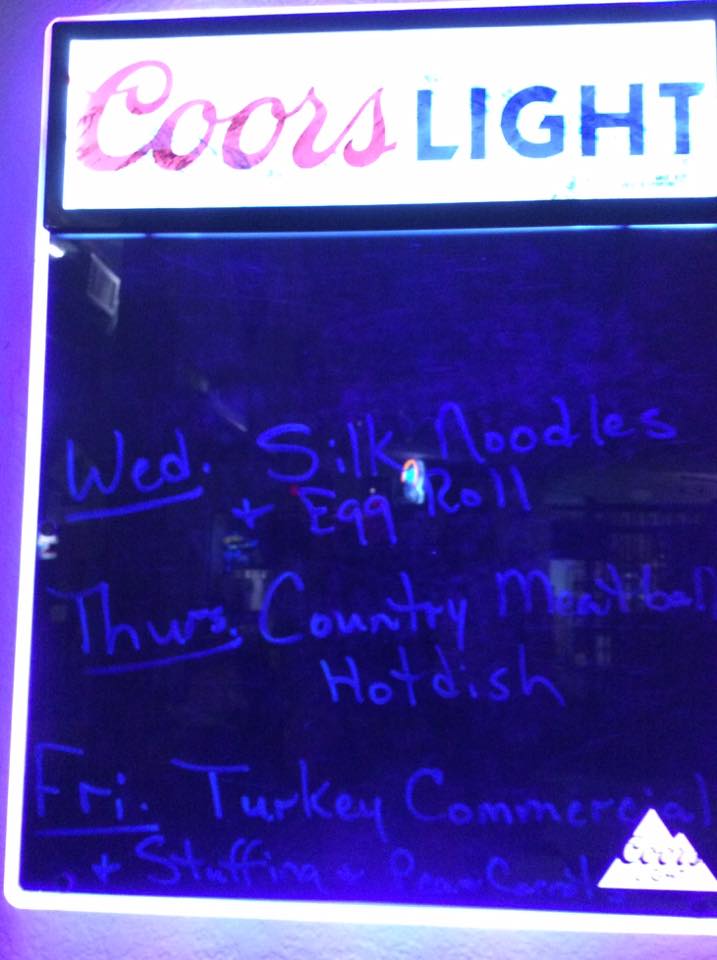 Coors LIGHT
Wed. Silk Noodles
+ Egg Roll
Thurs. Country Meatball
Hotdish
Fri. Turkey Commercial
+ Stuffing +
Coors
LIGHT